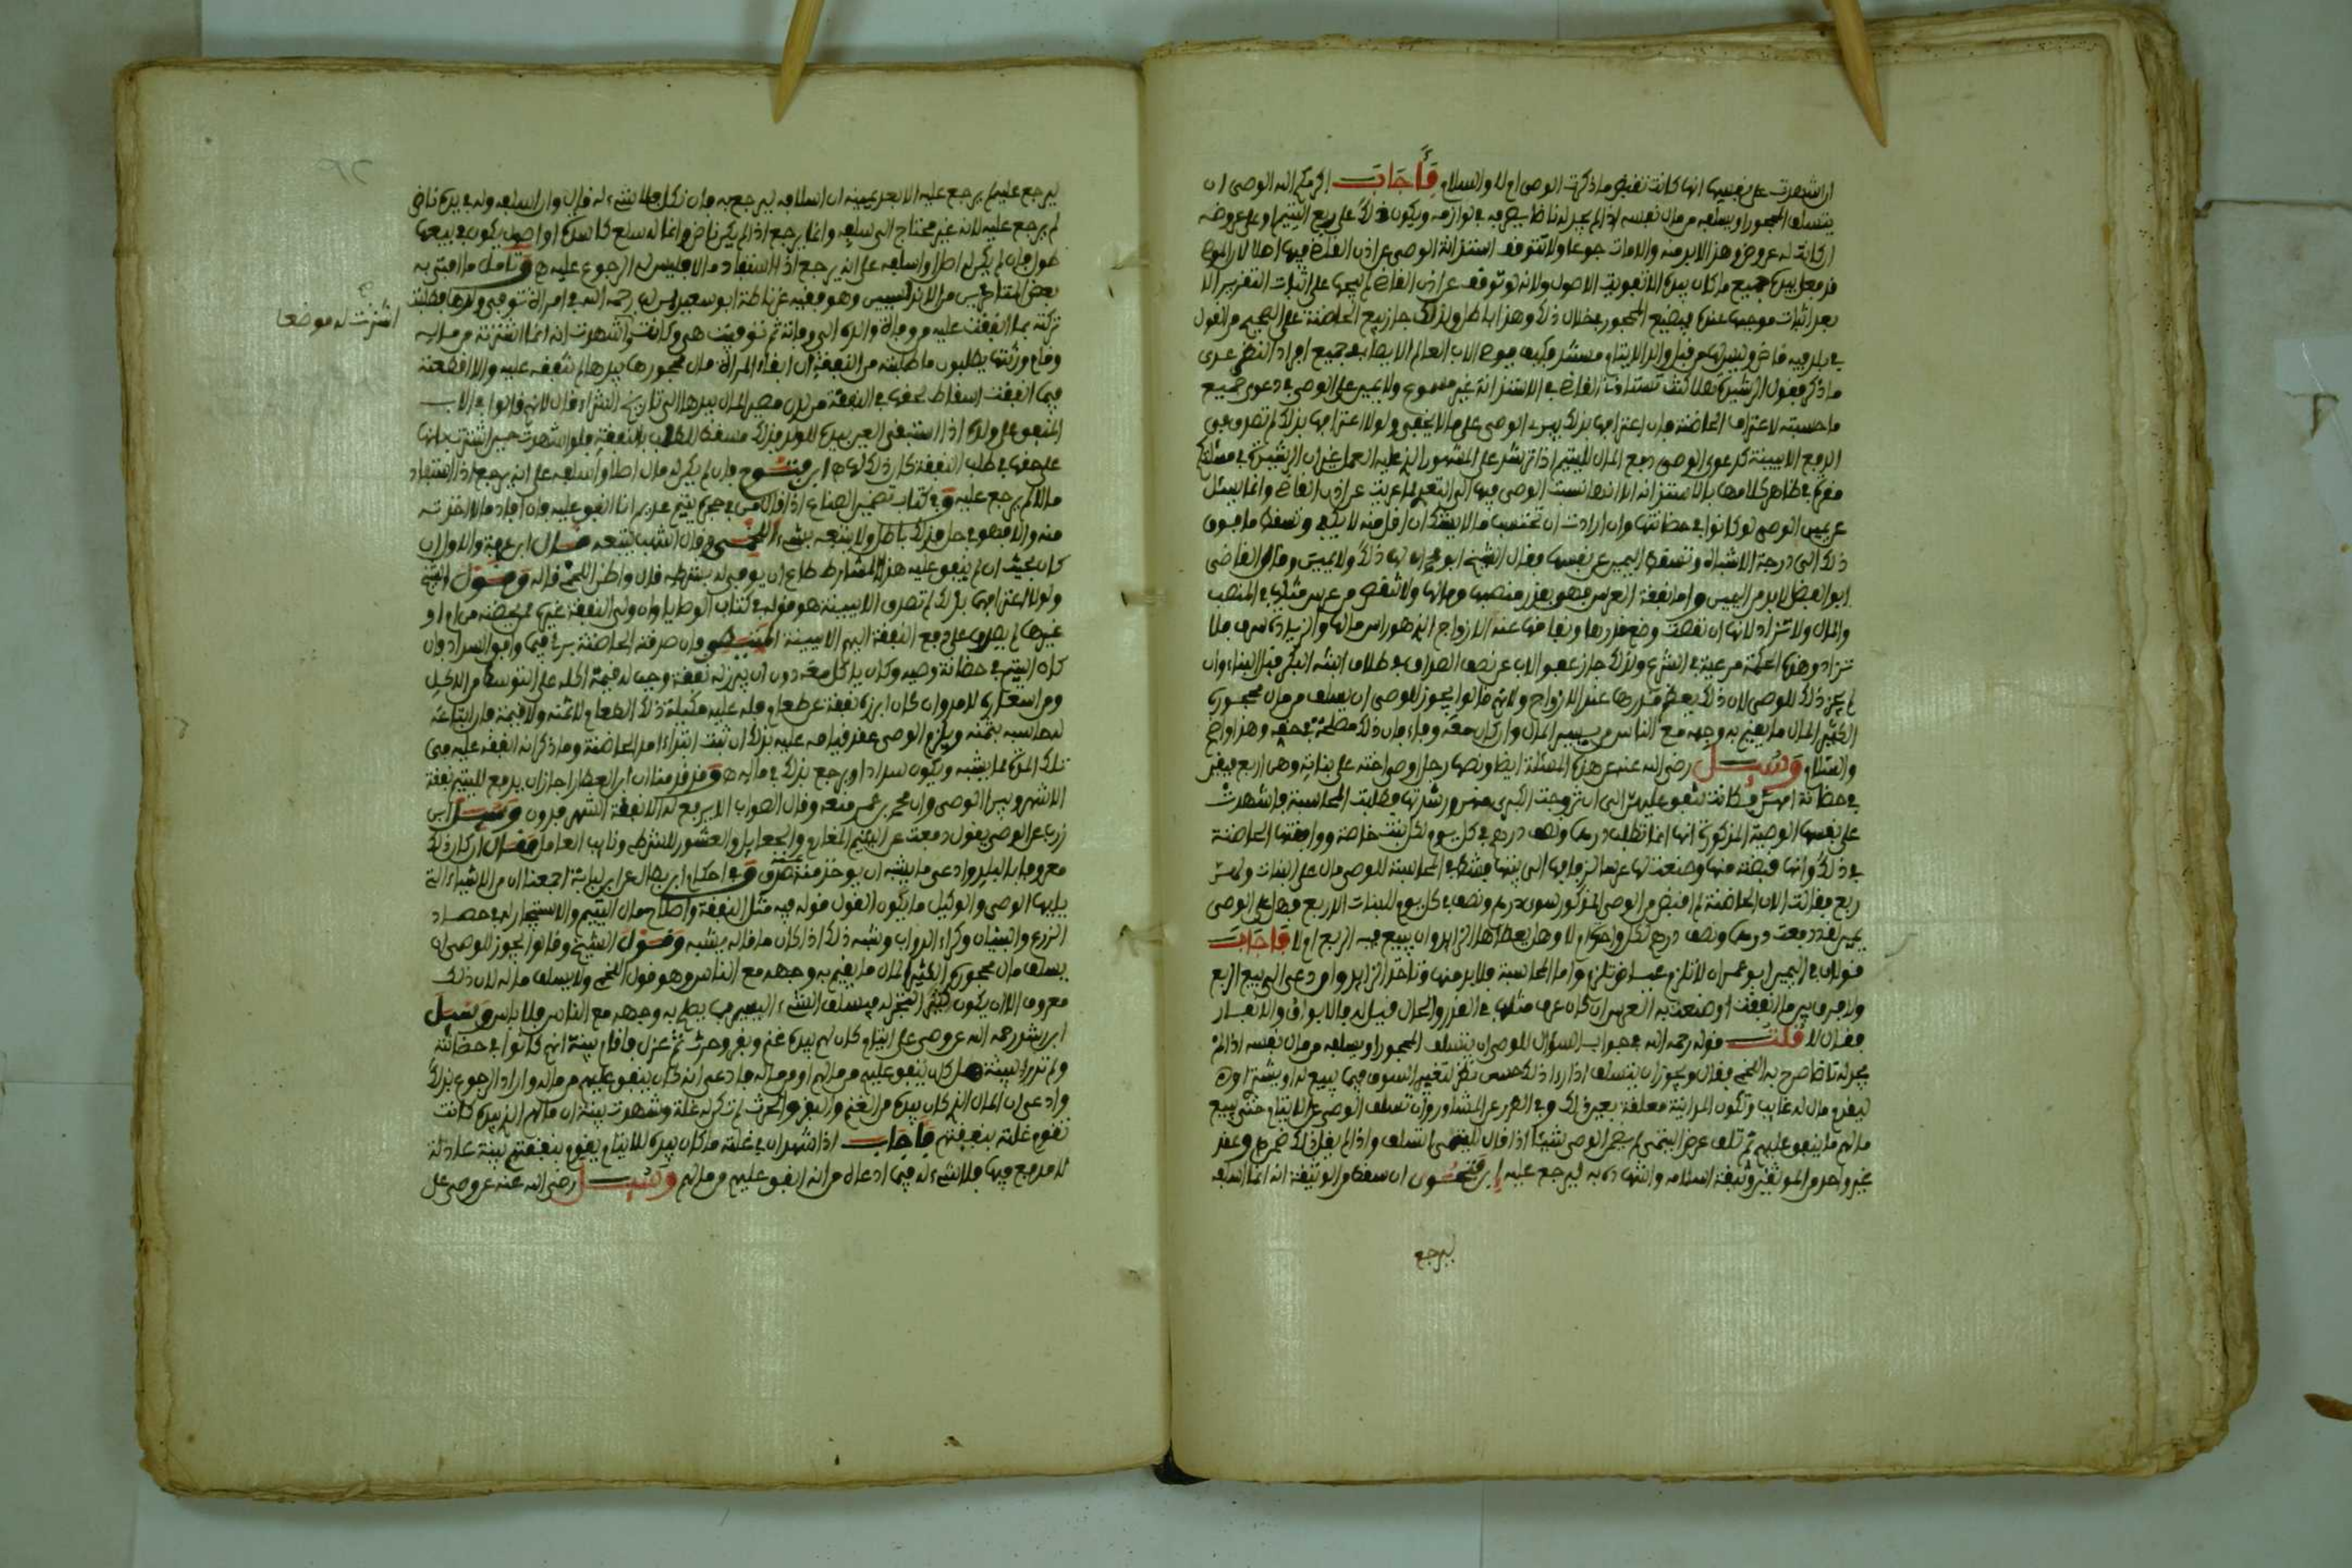 ان اشهدت على نفسها انها كانت تقبض ما ذكرت الوصي ام لا والسلام فأجاب اكرمكم الله الوصي ان
يتسلف للمحجور او يسلفه من مال نفسه اذا لم يجد له ناضا يصرفه في لوازمه ويكون ذلك على ربع اليتيم او على عروضه
ان كانت له عروض وهذا لا بد منه والا مات جوعا ولا تتوقف استدانة الوصي على اذن القاضي فيها اصلا لان الموصي
قد جعل بيده جميع ما كان بيده الا تفويت الاصول ولانه لو توقف على اذن القاضي لم يبحها على اثبات التقديم الا
بعد اثبات موجبها عنده فيضيع المحجور خلال ذلك وهذا باطل ولذلك جاز بيع الحاضنة على الصحيح من القول
في بلد فيه قاض وليس لها من قبل والد الايتام مستند فكيف بوصي الاب العام الايصاء في جميع افراد النظر عدى
ما ذكر فقول الرشيدة هلا كنت تستاذن القاضي في الاستدانة غير مسموع ولا يمين على الوصي في دعوى جميع
ما حسبته لاعتراف الحاضنة فان اعترافها بذلك يبرئ الوصي على ما لا يخفى ولولا اعترافها بذلك لم تصدق في
الدفع الا ببينة كدعوى الوصي دفع المال لليتيم اذا ترشد على المشهور الذي عليه العمل غير ان الرشيدة في مسئلتكم
مقرة في ظاهر كلامها بالاستدانة الا انها نسبت الوصي فيها الى التعدي لما عريت عن اذن القاضي وانما يسئل
عن يمين الوصي لو كانوا في حضانتها وان ارادت ان تحتسب ما لا يشك ان اقل منه لا يكفي وتسقط ما فوق
ذلك الى درجة الاشباه وتسقط اليمين عن نفسها فقال الشيخ ابو محمد لها ذلك ولا يمين وقال القاضي
ابو الفضل لا بد من اليمين واما نفقة العرس فهو بقدر منصبها ومالها ولا تنقص من عرس مثلها في المنصب
والمال ولا تزاد لانها ان نقصت وضع قدرها ونفاقها عند الازواج الذي هو راس مالها والزيادة سرف فلا
تزاد وهذه الحكمة مرعية في الشرع ولذلك جاز عفو الاب عن نصف الصداق في طلاق ابنته البكر قبل البناء وان
لم يجز ذلك للوصي لان ذلك يعظم قدرها عند الازواج ولانهم قالوا يجوز للوصي ان يسلف من مال محجوره
الكثير المال ما يقيم به وجهه مع الناس من يسير المال وان كان معه وفاء فان ذلك مصلحة في حقه وهذا واضح
والسلام وسئل رضي الله عنه عن هذه المسئلة ايضا ونصها رجل اوصى اخته على بناته وهن اربع فبقين
في حضانة امهن فكانت تنفق عليهن الى ان تزوجت الكبرى منهن ورشدتها فطلبت المحاسبة فاشهدت
على نفسها الوصية المذكورة انها انما تطلب درهما ونصف درهم في كل يوم لكل بنت خاصة ووافقتها الحاضنة
في ذلك وانها قبضته منها وصنعت لها عرسا لزفافها الى بيتها فشطط في المحاسبة للوصي مال على البنات ولهن
ربع فقالت الان الحاضنة لم اقبض من الوصي المذكور سوى درهم ونصف في كل يوم للبنات الاربع فهل على الوصي
يمين لقد دفعت درهما ونصف درهم لكل واحدة ام لا وهل يعطاها الزائد وان بيع فيه الربع ام لا فأجاب
قولان في اليمين ابو عمران لا تلزم عياض تلزم واما المحاسبة فلا بد منها وتاخذ الزائد ولو دعى الى بيع الربع
ولا فرق بين ما انفقت او صنعت به العرس ان كان عرس مثلها في القدر والحال قيل له فالابواق والانفار
فقال لا قلت قوله رحمه الله في جواب السؤال للوصي ان يتسلف للمحجور او يسلفه من مال نفسه اذا لم
يجد له ناضا صرح به اللخمي فقال ويجوز ان يتسلف اذا راى ذلك حسن نظر لتغير السوق فيما يبيع له او يشتري او
ليقدم مال له غايب وتكون المداينة معلقة بعين ذلك وفي الطرر عن المشاور وان تسلف الوصي على الايتام حتى يبيع
ما لهم ما ينفق عليهم ثم تلف عرض اليتمى لم يضمن الوصي شيئا اذا قال لليتمى اتسلف واذا لم يقل ذلك ضمن هـ وعقد
غير واحد من الموثقين وثيقة اسلافه وانتهى ذكره به ليرجع عليه ابن فتحون ان سقط من الوثيقة انه انما اسلفه
ليرجع
ليرجع عليه لم يرجع عليه الا بعد يمينه ان اسلافه ليرجع به فان نكل فلا شيء له قال وان اسلفه وله في يده ناض
لم يرجع عليه لانه غير محتاج الى سلفه وانما يرجع اذا لم يكن ناض وانما له سلع كاسدة او اصول يكون في بيعها
طول فان لم يكن له اصلا واسلفه على انه يرجع اذا استفاد مالا فليس له الرجوع عليه هـ وتامل ما افتى به
بعض المتاخرين من الاندلسيين وهو فقيه غرناطة ابو سعيد بن لب رحمه الله في امراة توفي ولدها فطلبت
تركته بما انفقت عليه من وفاة والده الى وفاته ثم توفيت هي وكانت اشهدت انه انما اشترته من ماله
اشترت له موضعا
وقام ورثتها يطلبون ما طلبته من النفقة ان ابقاء المراة مال محجورها بيدها لم تنفقه عليه والا اقطعته
فيما انفقت اسقاط لحقها في النفقة من لدن مصير المال بيدها الى تاريخ الشراء قال لانهم قالوا في الاب
المنفق على ولده اذا استبقى العين بيده للولد فذلك مسقط للطلب بالنفقة فلو اشهدت حين اشترت بانها
على حقها في طلب النفقة كان ذلك لها هـ ابن فتوح فان لم يكن له مال اصلا واسلفه على انه يرجع اذا استفاد
مالا لم يرجع عليه وفي كتاب تضمين الصناع اذا قال من في حجره يتيم عديم انا انفق عليه فان افاد مالا اخذته
منه والا فهو في حل فذلك باطل ولا يتبعه بشيء اللخمي وقال اشهب يتبعه قال ابن عرفة والاول ان
كان بحيث ان لم ينفق عليه هذا المشارط ضاع ان يوفى له بشرطه قال واظن اللخمي قاله وقول الشيخ
ولولا اعترافها بذلك لم تصدق الا ببينة هو قوله في كتاب الوصايا وان ولي النفقة غيره ممن يحضنه من ام او
غيرها لم يصدق على دفع النفقة اليهم الا ببينة المتيطي وان صرفته الحاضنة بري فيما وافق السداد وان
كان اليتيم في حضانة وصيه وكان ياكل معه دون ان يبرز له نفقة وجب له قيمة اكله على التوسط من الاكل
ومراستغلال للامر وان كان ابرز له نفقة من طعام فله عليه مكيلة ذلك الطعام لا ثمنه ولا قيمة فان ابتاعه
له حاسبه بثمنه ويلزم الوصي عقد قيامه عليه بذلك ان ثبت ابتداء امر الحاضنة وما ذكر انه انفقه عليه في
تلك المدة لما يشبه ويكون سدادا ويرجع بذلك في ماله هـ وقد قدمنا ان ابن العطار اجاز ان يدفع لليتيم نفقة
الاشهر ويبرا الوصي وان محمد بن عمر منعه وقال الصواب الا يدفع له الا نفقة الشهر فدون وسئل ابن
زرب عن الوصي يقول دفعت عن اليتيم المغارم والجعايل والعشور للشرطي ونايب العامل فقال ان كان ذلك
معروفا بالبلد وادعى ما يشبه ان يوخذ منه صدق وفي احكام ابن بطال عن ابن لبابة اجمعنا ان من الاشياء التي
يليها الوصي والوكيل ما يكون القول قوله فيه مثل النفقة واصلاح مال اليتيم والاستيجار له في حصاد
الزرع والبنيان وكراء الدواب وشبه ذلك اذا كان ما قاله يشبه وقول الشيخ وقالوا يجوز للوصي ان
يسلف مال محجوره الكثير المال ما يقيم به وجهه مع الناس هو قول اللخمي ولا يسلف ماله لان ذلك
معروف الا ان يكون كثير التجر له فيسلف الشيء اليسير مما يصلح به وجهه مع الناس فلا باس وسئل
ابن رشد رحمه الله عن وصي على ايتام كان لهم بيده غنم وبقر وحرث ثم عزل واقام بينة انهم كانوا في حضانته
ولم تدر البينة هل كان ينفق عليهم من مالهم او من ماله فادعى انه كان ينفق عليهم من ماله واراد الرجوع بذلك
وادعى ان المال الذي كان بيده من الغنم والبقر والحرث لم تكن له غلة وشهدت بينة ان مالهم الذي بيده كانت
تقوم غلته بنفقتهم فأجاب اذا شهد ان في غلة ما كان بيده للايتام يقوم بنفقتهم بينة عادلة
لا مدفع فيها فلا شيء له فيما ادعاه من انه انفق عليهم من ماله وسئل رضي الله عنه عن وصي على